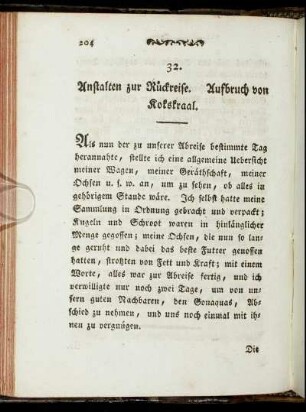 204
32.
Anstalten zur Rückreise. Aufbruch von
Kokskraal.
Als nun der zu unserer Abreise bestimmte Tag
herannahte, stellte ich eine allgemeine Uebersicht
meiner Wagen, meiner Geräthschaft, meiner
Ochsen u. s. w. an, um zu sehen, ob alles in
gehörigem Stande wäre. Ich selbst hatte meine
Sammlung in Ordnung gebracht und verpackt;
Kugeln und Schroot waren in hinlänglicher
Menge gegossen; meine Ochsen, die nun so lan-
ge geruht und dabei das beste Futter genossen
hatten, strotzten von Fett und Kraft; mit einem
Worte, alles war zur Abreise fertig, und ich
verwilligte nur noch zwei Tage, um von un-
sern guten Nachbaren, den Gonaquas, Ab-
schied zu nehmen, und uns noch einmal mit ih-
nen zu vergnügen.
Die